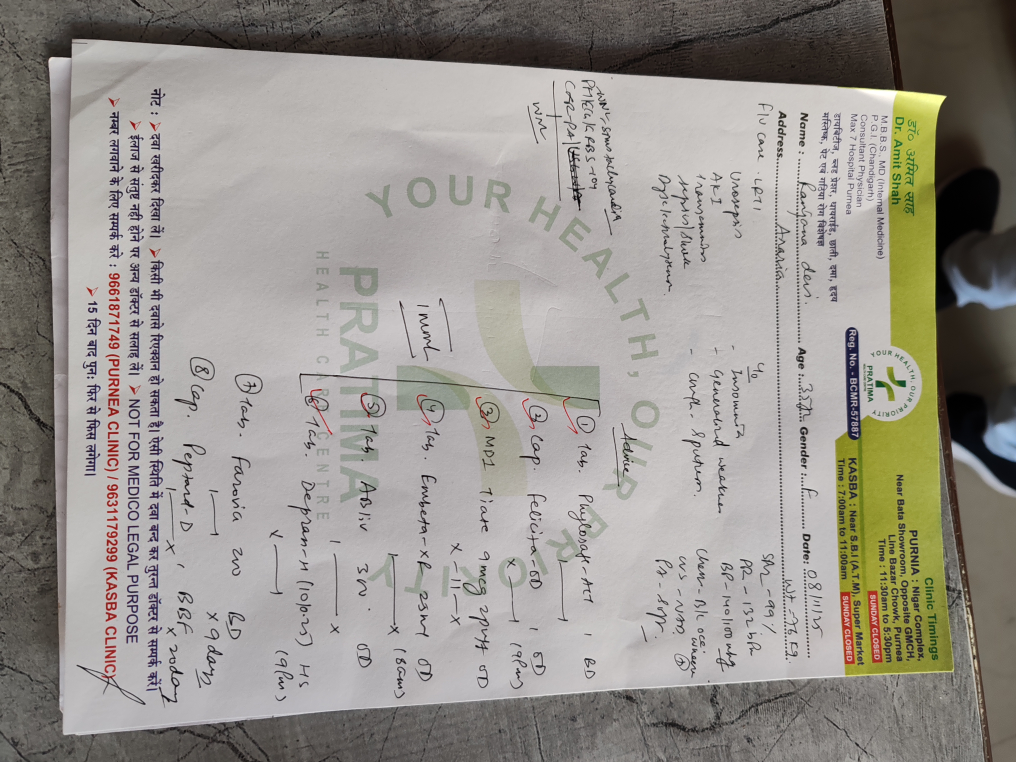 डॉ० अमित साह
Dr. Amit Shah
M.B.B.S., MD (Internal Medicine)
P.G.I. (Chandigarh)
Consultant Physician
Max 7 Hospital Purnea
डायबिटीज, ब्लड प्रेशर, थायराईड, छाती, दमा, हृदय
मस्तिष्क, पेट एवं गठिया रोग विशेषज्ञ
YOUR HEALTH, OUR PRIORITY
PRATIMA
Reg. No. - BCMR-57887
Clinic Timings
PURNIA : Nigar Complex,
Near Bata Showroom, Opposite GMCH,
Line Bazar Chowk, Purnea
Time : 11:30am to 5:30pm
SUNDAY CLOSED
KASBA : Near S.B.I (A.T.M), Super Market
Time : 7:00am to 11:00am SUNDAY CLOSED
Name : Ranjana devi. Age : 35 Gender : F Date: 08/11/25
Address Araria
F/U case - LRTI
Urosepsis
AKI
Transaminitis
Sepsis/Shock
c/o
- Insomnia
- Generalised weakness
- cough - sputum.
SPO2 - 99%
PR - 132 b/m
BP - 140/100 mmHg
CVS - N/S1S2
P/A - Soft
Advice
1 Tab. 1 BD
2 Cap. Felicita-OD 1 OD
3 MDI Tiate 9 mcg 2puff OD
4 Tab. Embeta-XR 25mg OD
5 Tab. ABliv 300 OD
6 Tab. Depran-H (10/0.25) HS
7 Tab. Farovia 200 BD
x 9 days
8 Cap. Peptard-D 1 BBF
x 20 days
YOUR HEALTH, OUR PRIORITY
PRATIMA
HEALTH CARE CENTRE
नोट : ➤ दवा खरीदकर दिखा लें। ➤ किसी भी दवासे रिएक्शन हो सकता है। ऐसी स्थिति में दवा बन्द कर तुरन्त डॉक्टर से सम्पर्क करें।
➤ ईलाज से संतुष्ट नहीं होने पर अन्य डॉक्टर से सलाह लें। ➤ NOT FOR MEDICO LEGAL PURPOSE
➤ नम्बर लगवाने के लिए सम्पर्क करें : 9661871749 (PURNEA CLINIC) / 9631179299 (KASBA CLINIC)
➤ 15 दिन बाद पुनः फिर से फिस लगेगा।